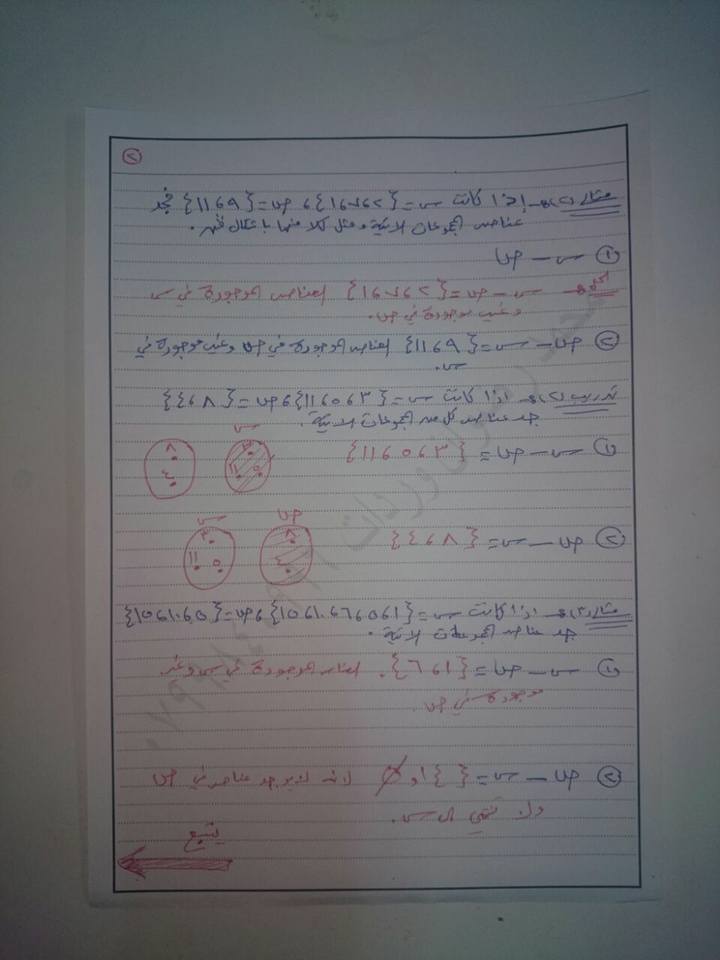 ٢
مثال (٢): إذا كانت س = {٢، ٧، ١٦} ، ص = {٩، ١١} فجد
عناصر المجموعات الآتية ومثل كلا منها بأشكال فن.
١) س – ص
الحل: س – ص = {٢، ٧، ١٦} العناصر الموجودة في س
وغير موجودة في ص.
٢) ص – س = {٩، ١١} العناصر الموجودة في ص وغير موجودة في
س.
تدريب (٢): اذا كانت س = {٣، ٥، ١١} ، ص = {٨، ٤}
جد عناصر كل من المجموعات الآتية.
١) س – ص = {٣، ٥، ١١}
س
٣ ٥ ١١
٨ ٤
٢) ص – س = {٨، ٤}
ص س
٨ ٤
٣ ٥ ١١
مثال (٣): اذا كانت س = {١، ٥، ٦، ١٠، ١٥} ، ص = {٥، ١٠، ١٥}
جد عناصر المجموعات الآتية.
١) س – ص = {١، ٦}. العناصر الموجودة في س وغير
موجودة في ص.
٢) ص – س = { } او ∅ لانه لا يوجد عناصر في ص
ولا تنتمي الى س.
يتبع